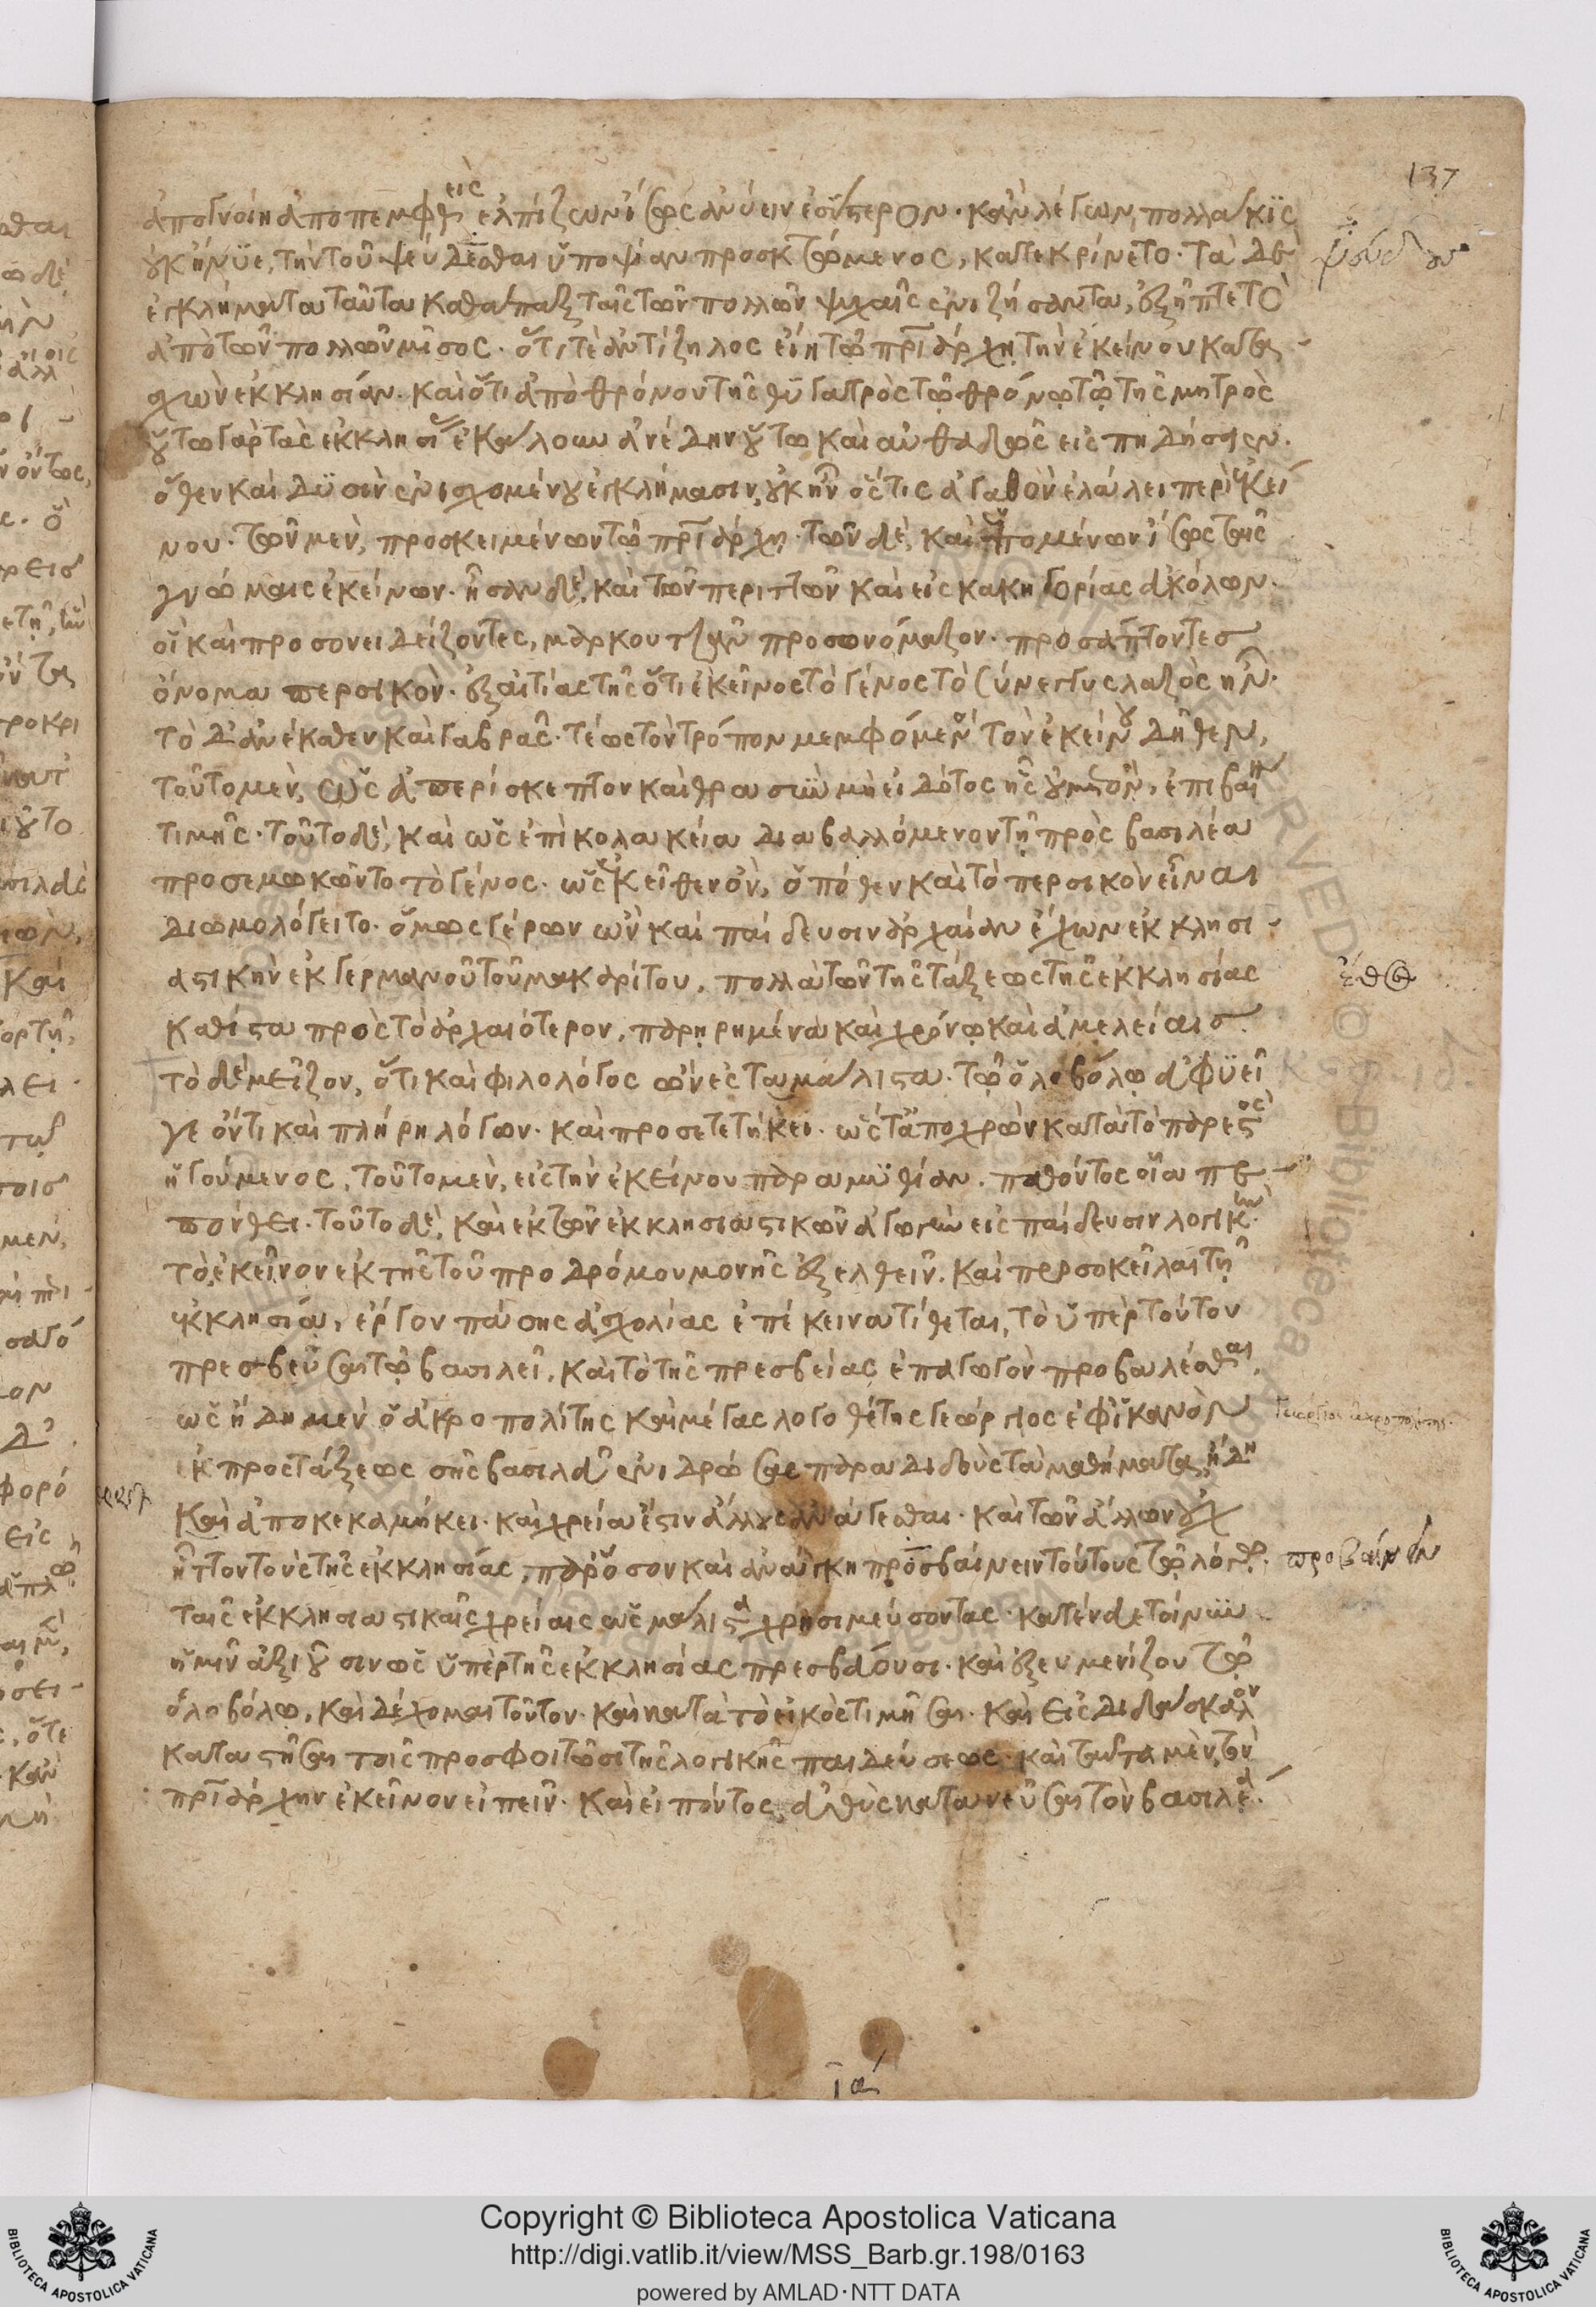 137
ἀπογνοίη ἀποπεμφθεὶς ἐλπίζων ἴσως ἀνύειν ἐσύστερον. κἂν λέγων, πολλάκις
οὐκ ἤνυε, τὴν τοῦ ψεύδεσθαι ὑποψίαν προσκτώμενος, κατεκρίνετο. τὰ δὲ
ἐγκλήματα ταῦτα καθάπαξ ταῖς τῶν πολλῶν ψυχαῖς ἐνιζήσαντα, ἐξῆπτε τὸ
ἀπὸ τῶν πολλῶν μῖσος. ὅτι τὲ ἀντίζηλος εἴη τῷ πριάρχῃ τὴν ἐκείνου κατα
σχὼν ἐκκλησίαν. καὶ ὅτι ἀπὸ θρόνου τῆς θυγατρὸς τῷ θρόνῳ τῷ τῆς μητρὸς
οὕτω γὰρ τὰς ἐκκλησίας ἐκάλουν ἀνέδην οὕτω καὶ αὐθαδῶς εἰσπηδήσειεν.
ὅθεν καὶ δυσὶν ἐνισχομένου ἐγκλήμασιν, οὐκ ἦν ὅστις ἀγαθὸν ἐλάλει περὶ ἐκεί
νου. τῶν μὲν, προσκειμένων τῷ πριάρχῃ. τῶν δὲ, καὶ ἑπομένων ἴσως ταῖς
γνώμαις ἐκείνων. ἦσαν δὲ, καὶ τῶν περιττῶν καὶ εἰς κακηγορίας ἀκόλων.
οἳ καὶ προσονειδίζοντες, μαρκουτζᾶν προσωνόμαζον. προσάπτοντες
ὄνομα περσικὸν. ἐξ αἰτίας τῆς ὅτι ἐκεῖνος τὸ γένος τὸ σύνεγγυς λαζὸς ἦν.
τὸ δ' ἀνέκαθεν καὶ γαβρᾶς. τέως τὸν τρόπον μεμφόμενοι τὸν ἐκείνου δῆθεν,
τοῦτο μὲν, ὡς ἀπερίσκεπτον καὶ θρασὺν μὴ εἰδότος ἧς οὐ μετὸν, ἐπιβαίνειν
τιμῆς. τοῦτο δὲ, καὶ ὡς ἐπὶ κολακεία διαβαλλόμενον τῇ πρὸς βασιλέα
προσεμωκῶντο τὸ γένος. ὡς κεῖθεν ὂν, ὁπόθεν καὶ τὸ περσικὸν εἶναι
διωμολόγειτο. ὅμως γέρων ὢν καὶ παίδευσιν ἀρχαίαν ἔχων ἐκκλησι
αστικὴν ἐκ γερμανοῦ τοῦ μακαρίτου, πολλὰ τῶν τῆς τάξεως τῆς ἐκκλησίας
καθίστα πρὸς τὸ ἀρχαιότερον, παρῃρημένα καὶ χρόνῳ καὶ ἀμελείαις.
τὸ δὲ μεῖζον, ὅτι καὶ φιλολόγος ὢν ἐς τὰ μάλιστα. τῷ ὁλοβόλῳ ἀφυεῖ
γε ὄντι καὶ πλήρη λόγων. καὶ προσετετήκει. ὡς τἀποχρῶν κατ' αὐτὸ παρεστὸς
ἡγούμενος, τοῦτο μὲν, εἰς τὴν ἐκείνου παραμυθίαν. παθόντος οἷα πε
πόνθει. τοῦτο δὲ, καὶ ἐκ τῶν ἐκκλησιαστικῶν ἀγωγὴν εἰς παίδευσιν λογικὴν.
τὸ ἐκεῖνον ἐκ τῆς τοῦ προδρόμου μονῆς ἐξελθεῖν. καὶ προσοκεῖλαι τῇ
ἐκκλησίᾳ, ἔργον πάσης ἀσχολίας ἐπέκεινα τίθεται, τὸ ὑπὲρ τούτου
πρεσβεῦσαι τῷ βασιλεῖ, καὶ τὸ τῆς πρεσβείας ἐπαγωγὸν προβαλέσθαι,
ὡς ἤδη μὲν ὁ ἀκροπολίτης καὶ μέγας λογοθέτης γεώργιος ἐφ' ἱκανὸν
ἐκ προστάξεως σῆς βασιλεῦ ἐνιδρώσας παραδιδοὺς τὰ μαθήματα, ἤδη
καὶ ἀποκεκαμήκει. καὶ χρεία ἔστιν ἄλλους ἀνάγεσθαι. καὶ τῶν ἄλλων οὐχ
ἧττον τοὺς τῆς ἐκκλησίας, παρ' ὅσον καὶ ἀνάγκη προσβαίνειν τούτους τῷ λόγῳ.
ταῖς ἐκκλησιαστικαῖς χρείαις ὡς μάλιστα χρησιμεύσοντας. κατένευε τοίνυν
ἡμῖν ἀξιοῦσιν ὡς ὑπὲρ τῆς ἐκκλησίας πρεσβεύουσι. καὶ ἐξευμενίζου τῷ
ὁλοβόλῳ, καὶ δέχομαι τοῦτον. καὶ κατὰ τὸ εἰκὸς τιμῆσαι. καὶ εἰς διδάσκαλον
καταστῆσαι τοῖς προσφοιτῶσι τῆς λογικῆς παιδεύσεως. καὶ ταῦτα μὲν, τὸν
πριάρχην ἐκεῖνον εἰπεῖν. καὶ εἰπόντος, εὐθὺς κατανεῦσαι τὸν βασιλέα.
Γεώργιος ἀκροπολίτης.
προβαίνειν
ια
Copyright © Biblioteca Apostolica Vaticana
http://digi.vatlib.it/view/MSS_Barb.gr.198/0163
powered by AMLAD·NTT DATA
BIBLIOTECA APOSTOLICA VATICANA
BIBLIOTECA APOSTOLICA VATICANA